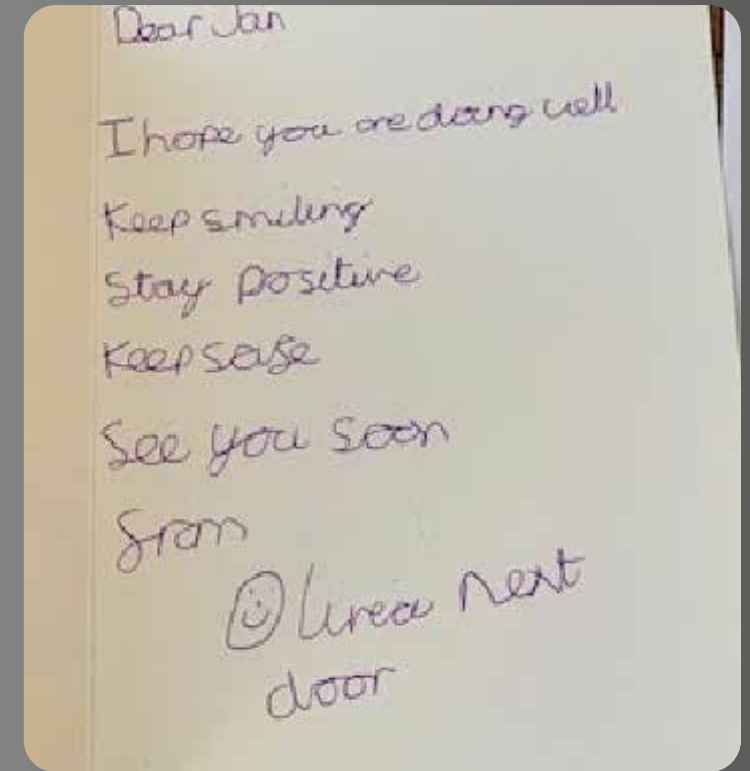 Dear Jan
I hope you are doing well
Keep smiling
Stay positive
Keep safe
See you soon
from
next
door